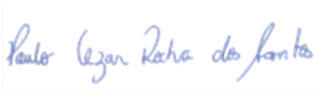 Paulo Cezar Rocha dos Santos